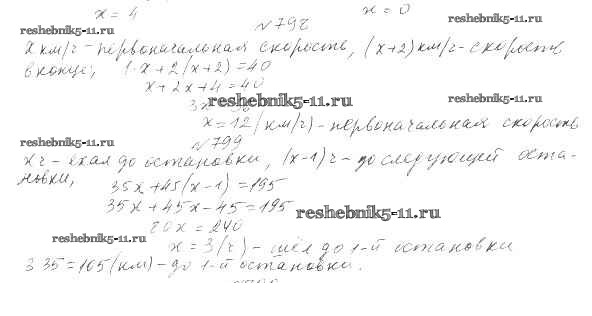 x = 4 x = 0
№ 798
reshebnik5-11.ru reshebnik5-11.ru
x км/ч - первоначальная скорость, (x+2) км/ч - скорость
в конце; 1·x + 2(x+2) = 40
reshebnik5-11.ru
x + 2x + 4 = 40
3x reshebnik5-11.ru reshebnik5-11.ru
x = 12 (км/ч) - первоначальная скорость
reshebnik5-11.ru № 799
x ч - ехал до остановки, (x-1) ч - до следующей оста-
новки,
35x + 45(x-1) = 195
35x + 45x - 45 = 195 reshebnik5-11.ru
80x = 240
reshebnik5-11.ru x = 3 (ч) - шёл до 1-й остановки
3 35 = 105 (км) - до 1-й остановки.